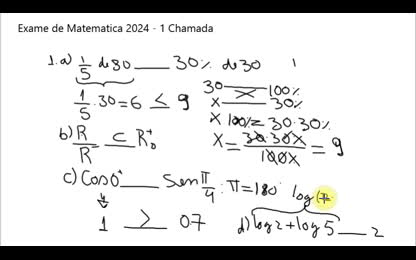 Exame de Matematica 2024 - 1 Chamada
1.a) 1/5 de 30 ___ 30% de 30
1/5 · 30 = 6 ≤ 9
30 — 100%
x — 30%
x 100% = 30·30%
x = 30·30% / 100% = 9
b) R/R ⊂ R₀⁺
c) Cos0° ___ Sen π/4 : π = 180
1 > 07
log (
d) log2 + log5 ___ 2